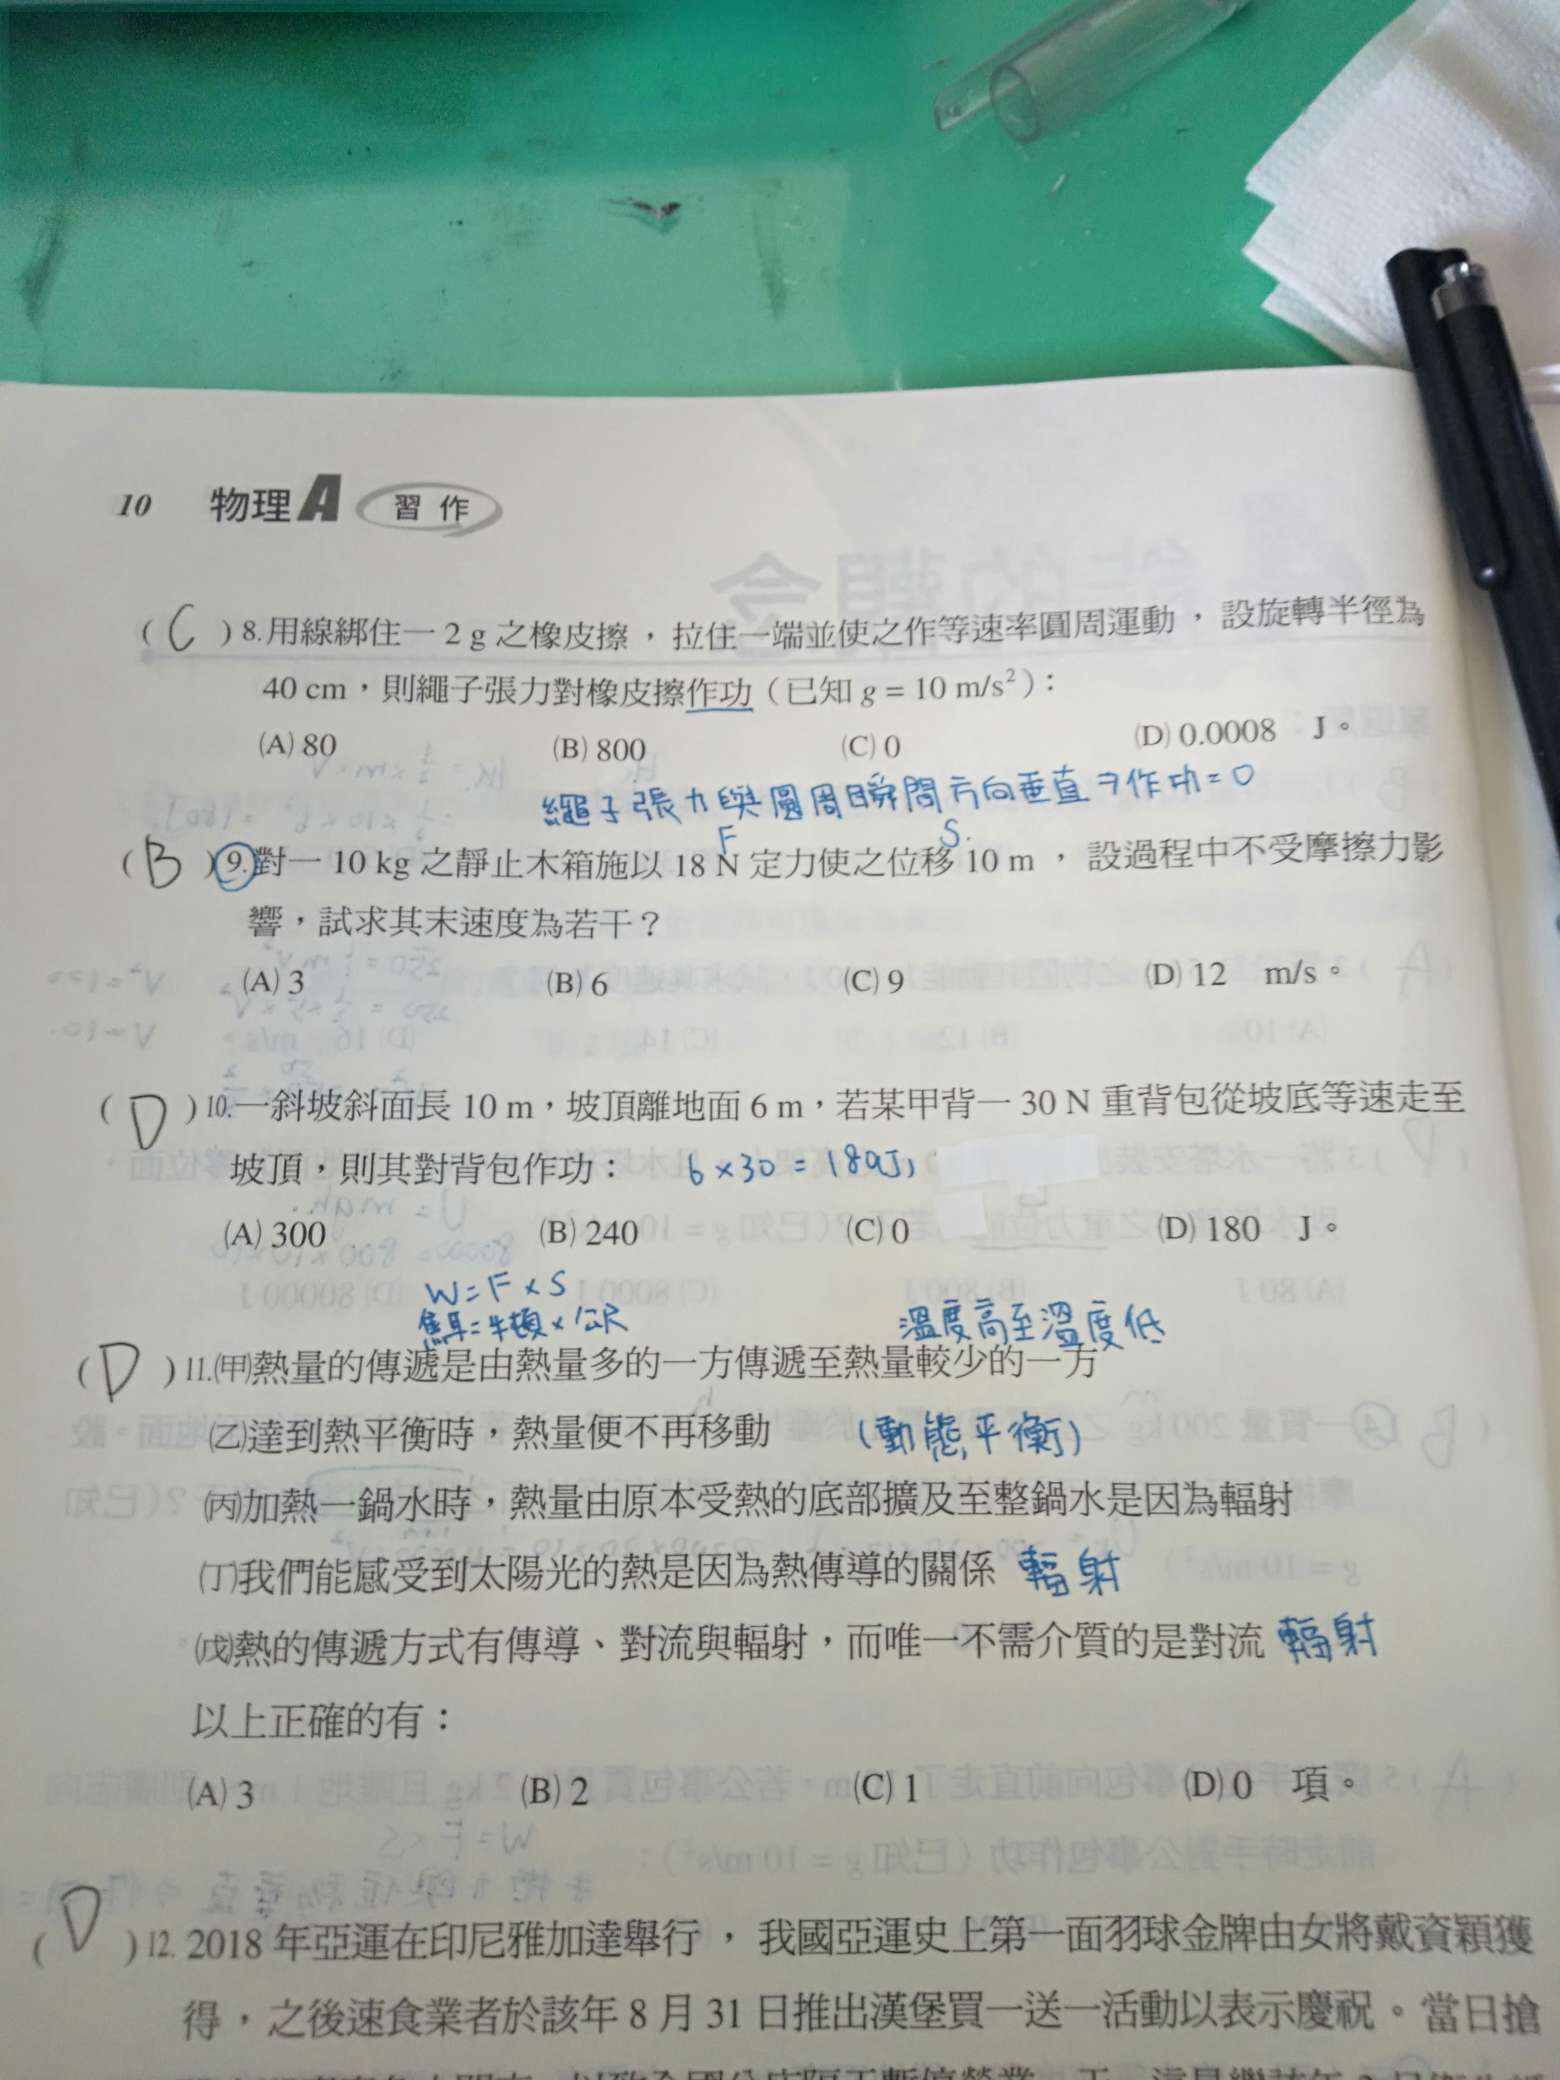 10 物理A 習作
(C)8.用線綁住一 2 g 之橡皮擦，拉住一端並使之作等速率圓周運動，設旋轉半徑為
40 cm，則繩子張力對橡皮擦作功（已知 g = 10 m/s²）：
(A) 80 (B) 800 (C) 0 (D) 0.0008 J。
繩子張力與圓周瞬間方向垂直⇒作功=0
F S.
(B)9.對一 10 kg 之靜止木箱施以 18 N 定力使之位移 10 m，設過程中不受摩擦力影
響，試求其末速度為若干？
(A) 3 (B) 6 (C) 9 (D) 12 m/s。
(D)10.一斜坡斜面長 10 m，坡頂離地面 6 m，若某甲背一 30 N 重背包從坡底等速走至
坡頂，則其對背包作功： 6×30=180J,
(A) 300 (B) 240 (C) 0 (D) 180 J。
W=F×S
焦耳=牛頓×公尺 溫度高至溫度低
(D)11.(甲)熱量的傳遞是由熱量多的一方傳遞至熱量較少的一方
(乙)達到熱平衡時，熱量便不再移動 (動態平衡)
(丙)加熱一鍋水時，熱量由原本受熱的底部擴及至整鍋水是因為輻射
(丁)我們能感受到太陽光的熱是因為熱傳導的關係 輻射
(戊)熱的傳遞方式有傳導、對流與輻射，而唯一不需介質的是對流 輻射
以上正確的有：
(A) 3 (B) 2 (C) 1 (D) 0 項。
(D)12. 2018 年亞運在印尼雅加達舉行，我國亞運史上第一面羽球金牌由女將戴資穎獲
得，之後速食業者於該年 8 月 31 日推出漢堡買一送一活動以表示慶祝。當日搶